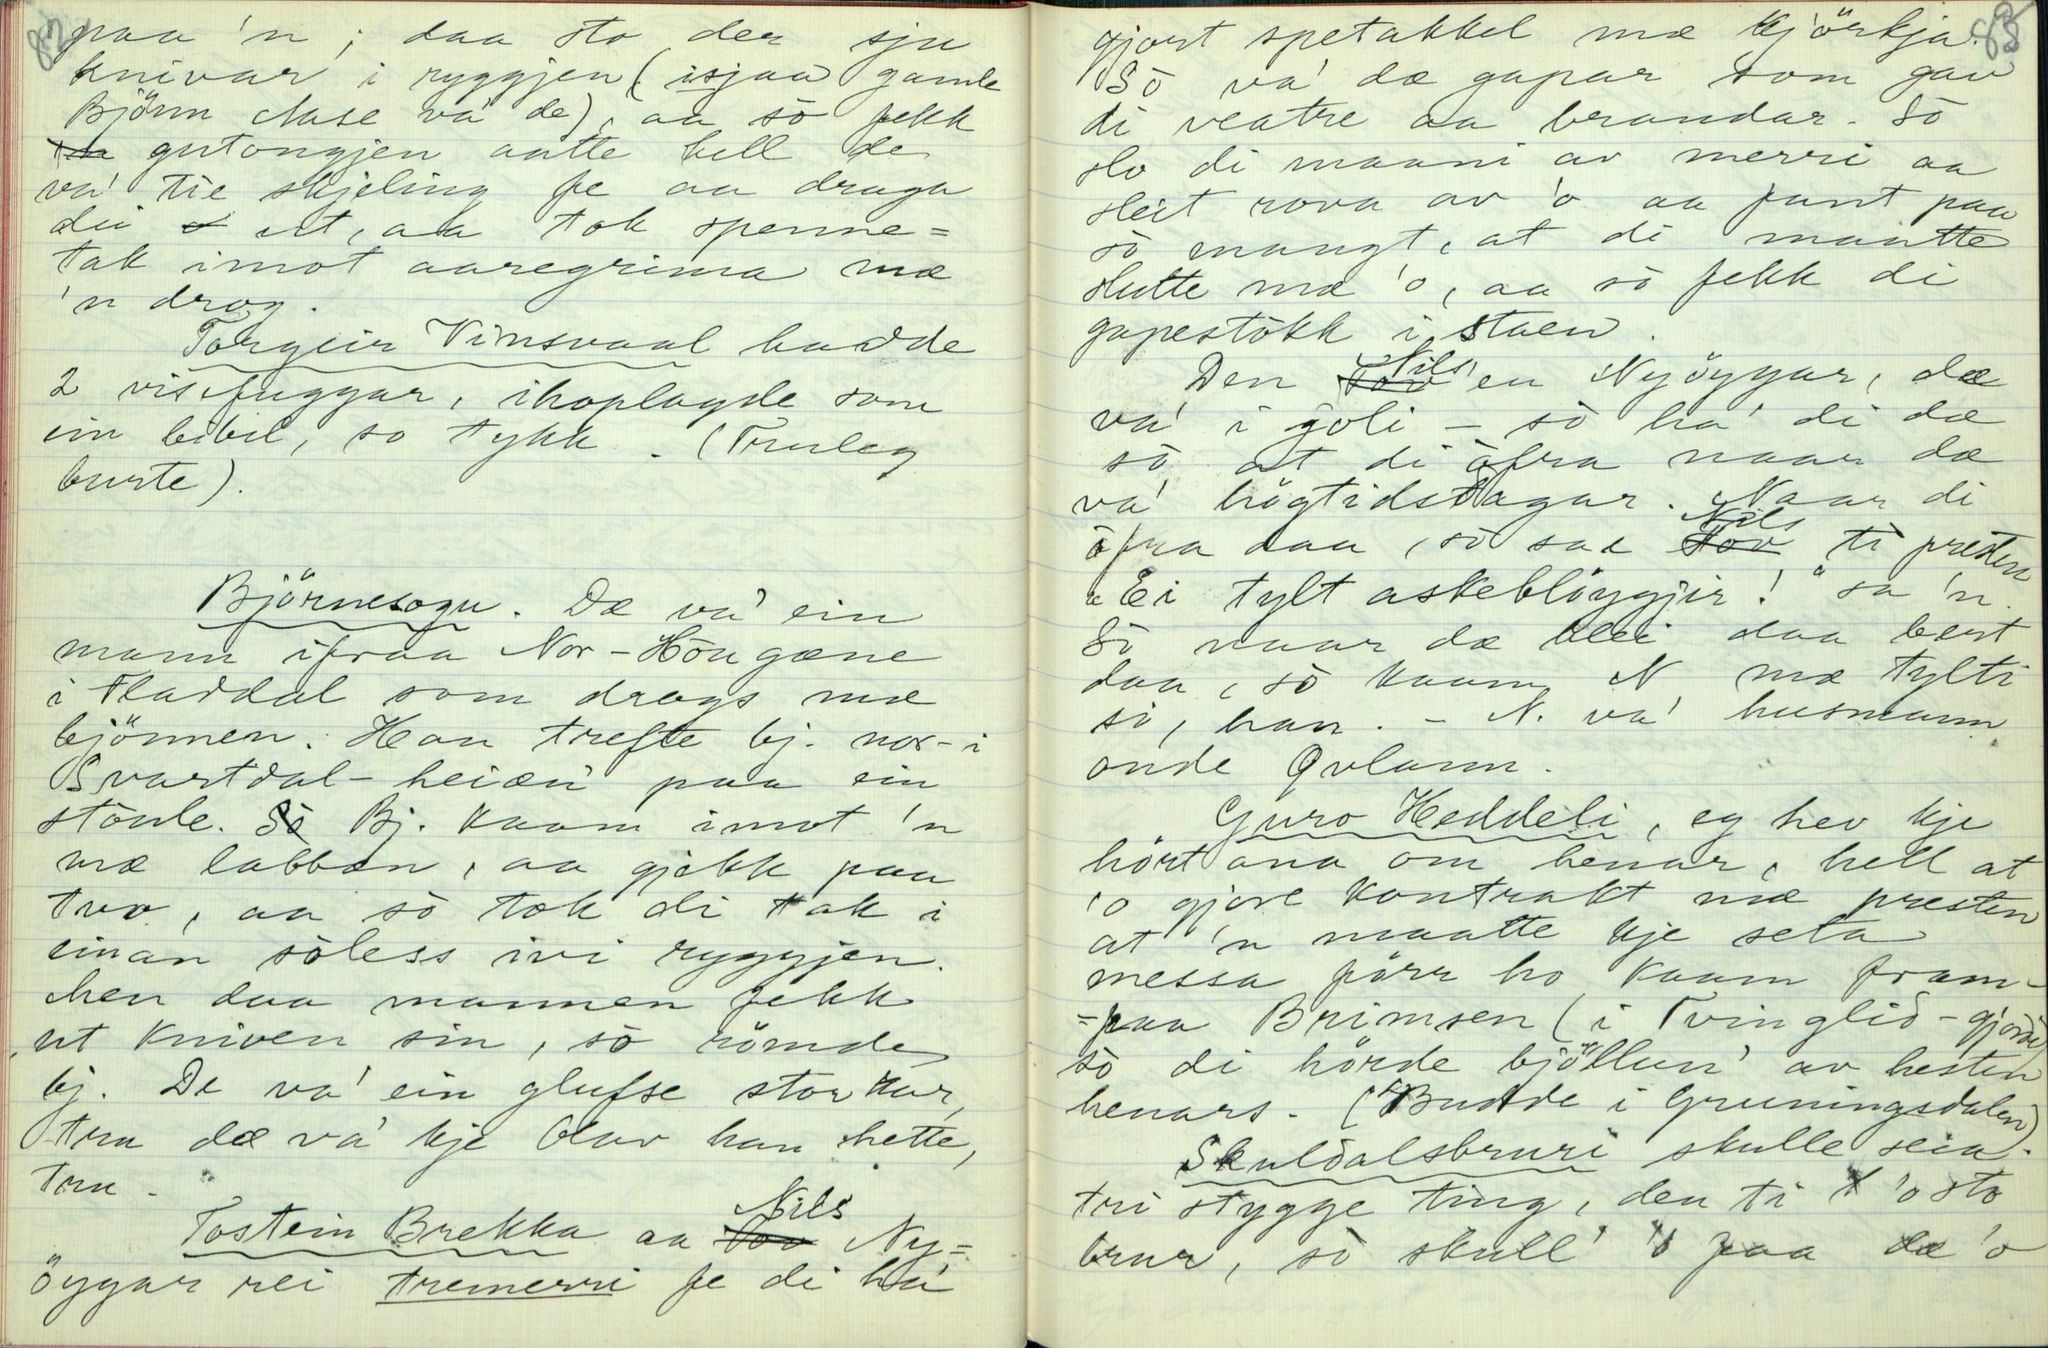 paa 'n; daa sto der sju
knivar i ryggjen (isjaa gamle
Björn Aase va' de), aa sò fekk
gutongjen aatte hell de
va' tie skjeling fe aa draga
dei ut, aa tok spenne=
tak imot aaregrima mæ
'n drog.
Torgeir Vinsvaal hadde
2 visefuggar, ihoplagde som
ein bibel, so tykk. (Truleg
burte).
Björnesogu. Dæ va' ein
mann ifraa Nor-Hougæne
i Fladdal som drogs mæ
bjönnen. Han trefte bj. nor-i
Svartdal-heiæn' paa ein
stönle. Sò Bj. kaam imot 'n
mæ labbæn, aa gjekk paa
tvo, aa sò tok di tak i
einan soless ivi ryggjen.
Men daa mannen fekk
ut kniven sin, sò römde
bj. De va' ein glufse stor kar,
tru dæ va' kje Olav han hette,
tru.
Tostein Brekka aa Nils Ny=
öygar rei tremerri fe di ha'
83
gjort spetakkel mæ kjörkja.
Sò va' dæ gapar som gav
di veatre aa brandar. Sò
slo di maani av merri aa
sleit rova av 'o aa fant paa
sò mangt, at di maatte
slutte mæ 'o, aa sò fekk di
gapestòkk i staen.
Den Nils'en Nyöygar, dæ
va' i joli - sò ha' di dæ
sò at di òfra naar dæ
va' högtidsdagar. Naar di
òfra daa, sò sae Nils ti presten
"Ei tylt askeblöygjir!" sa 'n.
Sò naar dæ blei daa best
daa, sò kaam N. mæ tylti
si, han. - N. va' husmann
onde Qvlann.
Guro Heddeli, eg hev kje
hört ana om henar, hell at
'o gjore kontrakt mæ presten
at 'n maatte kje seta
messa förr ho kaam fram-
=paa Brimsen (i Tvinglid-gjordi)
sò di hörde bjöllun' av hesten
henars. (Budde i Gruningsdalen)
Skuldalsbruri skulle seia
tri stygge ting, den ti 'o sto
brur, sò skull' 'o faa dæ 'o